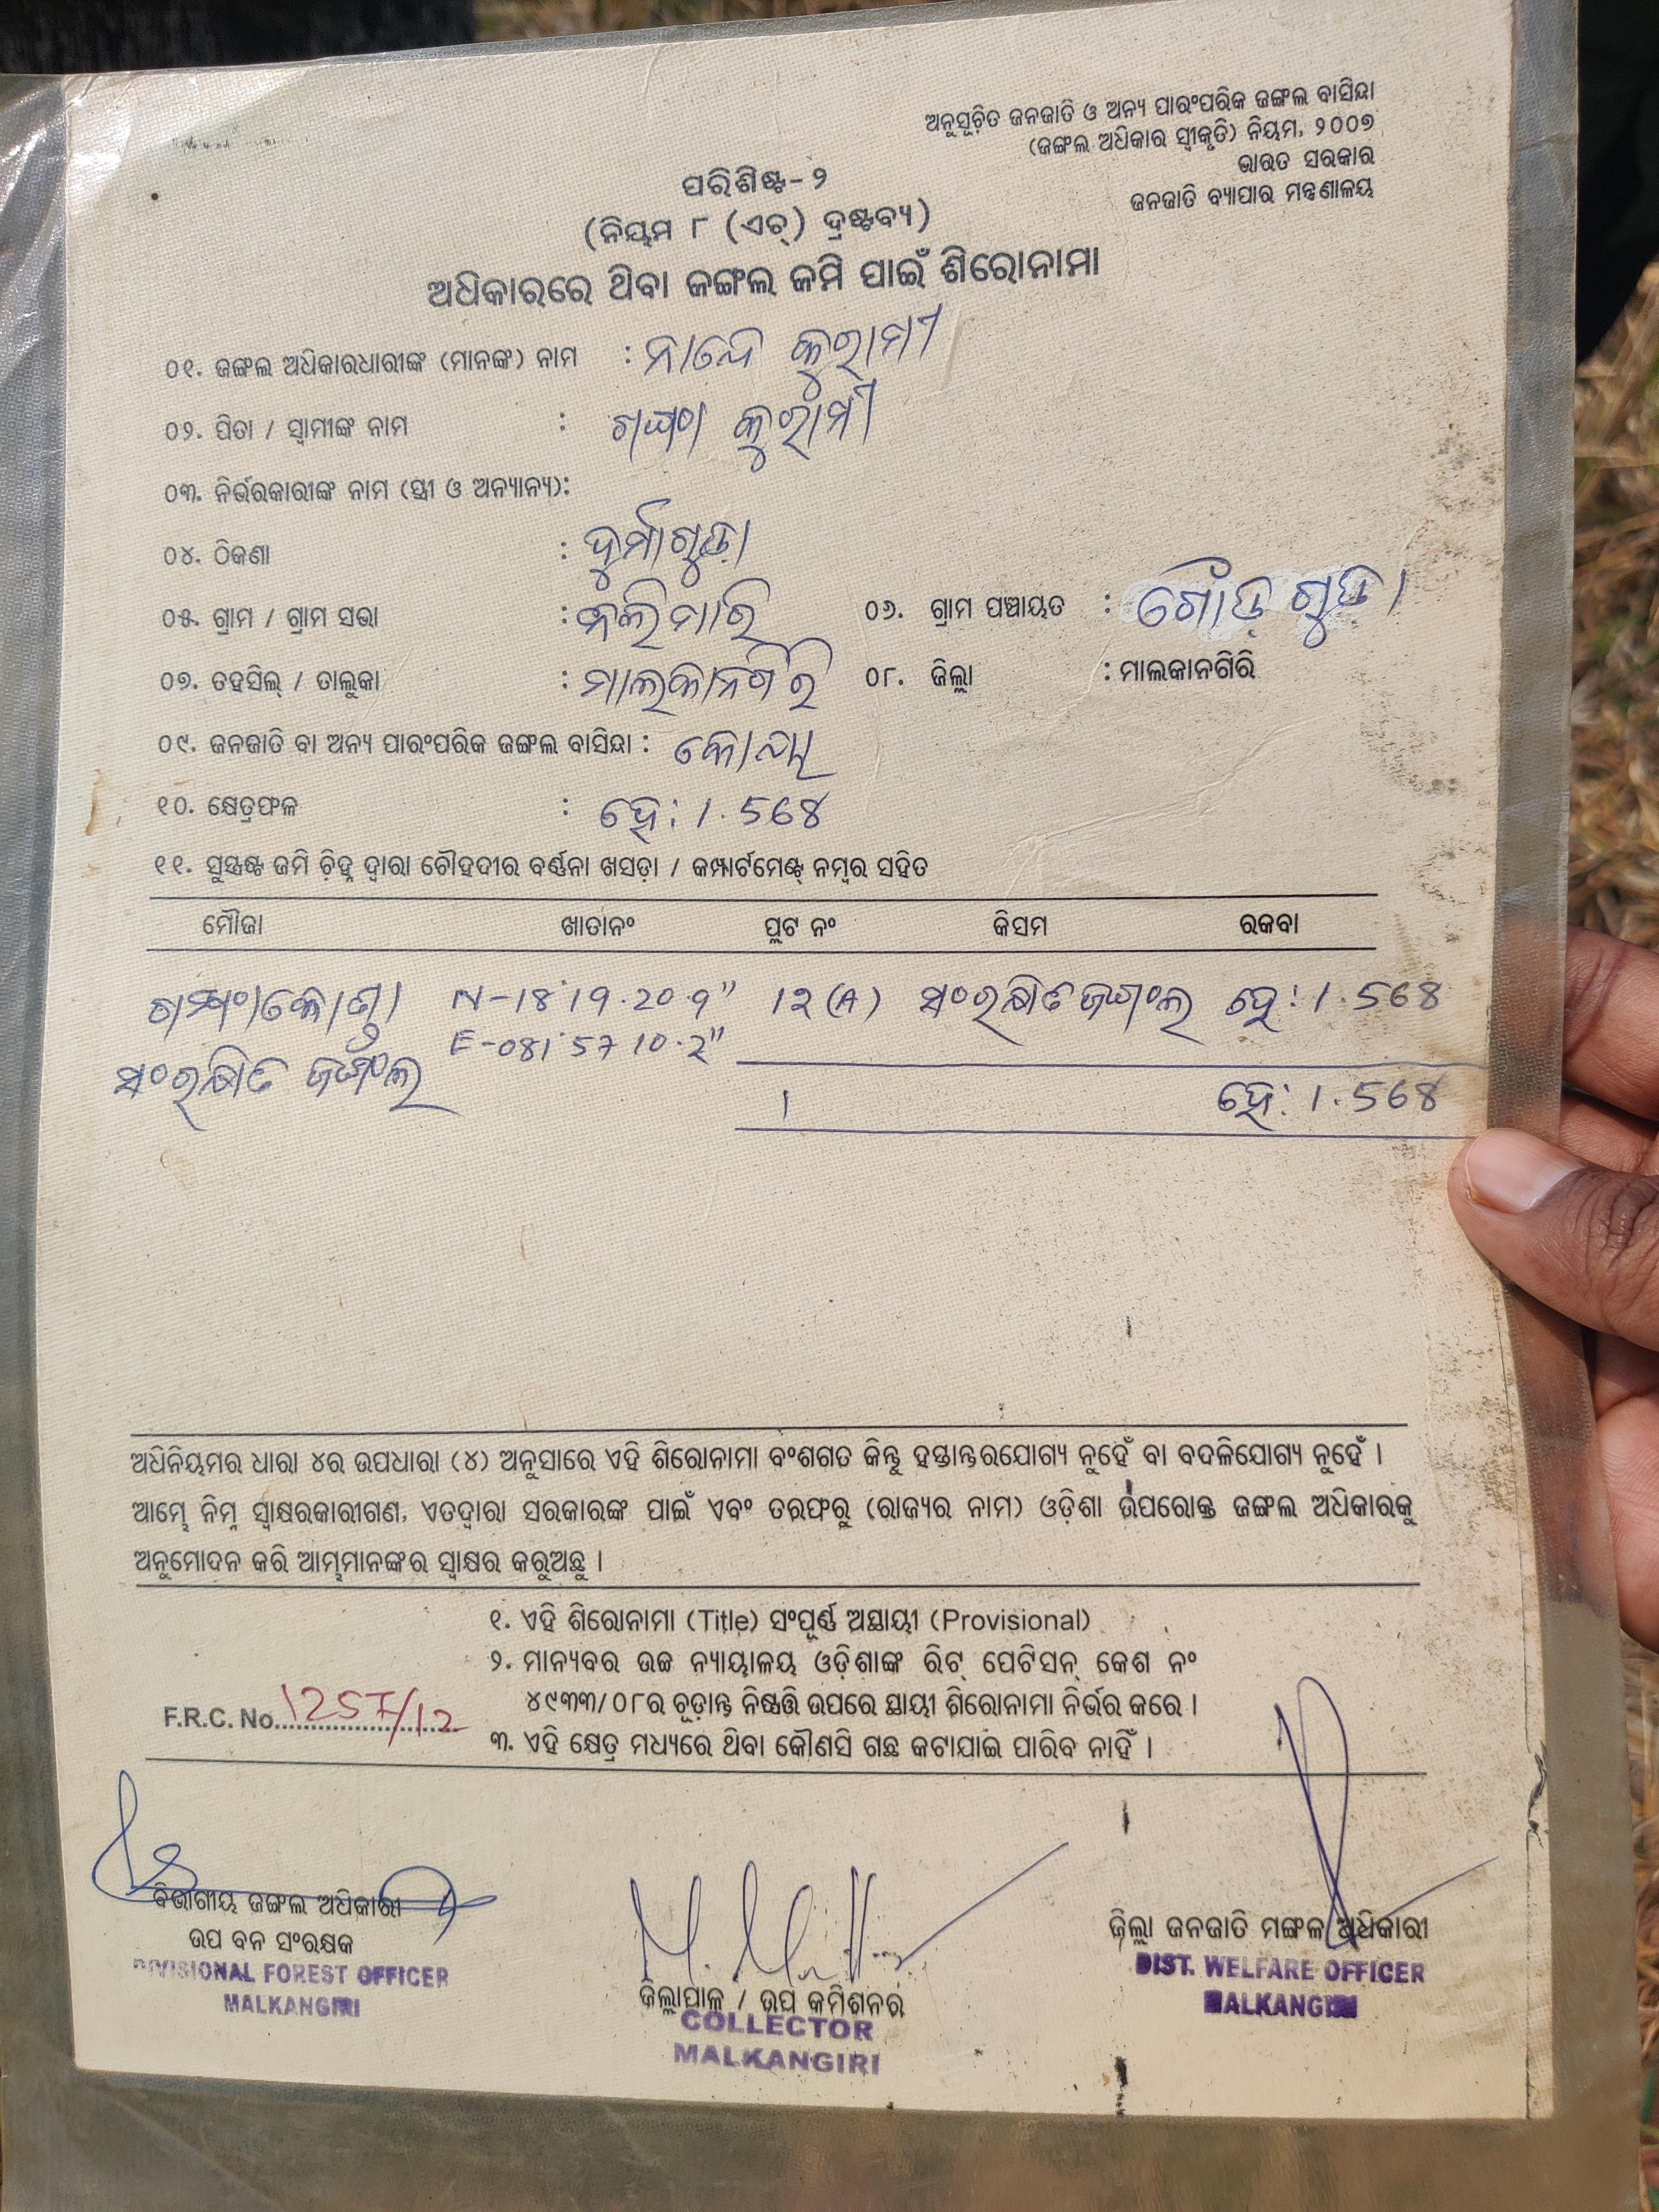 ଅନୁସୂଚିତ ଜନଜାତି ଓ ଅନ୍ୟ ପାରଂପରିକ ଜଙ୍ଗଲ ବାସିନ୍ଦା
(ଜଙ୍ଗଲ ଅଧିକାର ସ୍ୱୀକୃତି) ନିୟମ, ୨୦୦୭
ଭାରତ ସରକାର
ଜନଜାତି ବ୍ୟାପାର ମନ୍ତ୍ରଣାଳୟ
ପରିଶିଷ୍ଟ-୨
(ନିୟମ ୮ (ଏଚ୍) ଦ୍ରଷ୍ଟବ୍ୟ)
ଅଧିକାରରେ ଥିବା ଜଙ୍ଗଲ ଜମି ପାଇଁ ଶିରୋନାମା
୦୧. ଜଙ୍ଗଲ ଅଧିକାରଧାରୀଙ୍କ (ମାନଙ୍କ) ନାମ : ନାନ୍ଦେ କୁରାମୀ
୦୨. ପିତା / ସ୍ୱାମୀଙ୍କ ନାମ : ଗଙ୍ଗା କୁରାମୀ
୦୩. ନିର୍ଭରକାରୀଙ୍କ ନାମ (ସ୍ତ୍ରୀ ଓ ଅନ୍ୟାନ୍ୟ):
୦୪. ଠିକଣା : ଦୁର୍ମାଗୁଡ଼ା
୦୫. ଗ୍ରାମ / ଗ୍ରାମ ସଭା : ନଲିମାରି ୦୬. ଗ୍ରାମ ପଞ୍ଚାୟତ : ଗୌଡ଼ ଗୁଡ଼ା
୦୭. ତହସିଲ୍ / ତାଲୁକା : ମାଲକାନଗିରି ୦୮. ଜିଲ୍ଲା : ମାଲକାନଗିରି
୦୯. ଜନଜାତି ବା ଅନ୍ୟ ପାରଂପରିକ ଜଙ୍ଗଲ ବାସିନ୍ଦା : କୋୟା
୧୦. କ୍ଷେତ୍ରଫଳ : ହେ: 1.568
୧୧. ସୁସ୍ପଷ୍ଟ ଜମି ଚିହ୍ନ ଦ୍ୱାରା ଚୌହଦୀର ବର୍ଣ୍ଣନା ଖସଡ଼ା / କମ୍ପାର୍ଟମେଣ୍ଟ୍ ନମ୍ବର ସହିତ
ମୌଜା ଖାତାନଂ ପ୍ଲଟ ନଂ କିସମ ରକବା
N-18°19.20.9" 12(A) ସଂରକ୍ଷିତ ଜଙ୍ଗଲ ହେ: 1.568
E-081°57 10.2"
ସଂରକ୍ଷିତ ଜଙ୍ଗଲ
1 ହେ: 1.568
ଅଧିନିୟମର ଧାରା ୪ର ଉପଧାରା (୪) ଅନୁସାରେ ଏହି ଶିରୋନାମା ବଂଶଗତ କିନ୍ତୁ ହସ୍ତାନ୍ତରଯୋଗ୍ୟ ନୁହେଁ ବା ବଦଳିଯୋଗ୍ୟ ନୁହେଁ ।
ଆମ୍ଭେ ନିମ୍ନ ସ୍ୱାକ୍ଷରକାରୀଗଣ, ଏତଦ୍ୱାରା ସରକାରଙ୍କ ପାଇଁ ଏବଂ ତରଫରୁ (ରାଜ୍ୟର ନାମ) ଓଡ଼ିଶା ଉପରୋକ୍ତ ଜଙ୍ଗଲ ଅଧିକାରକୁ
ଅନୁମୋଦନ କରି ଆମ୍ଭମାନଙ୍କର ସ୍ୱାକ୍ଷର କରୁଅଛୁ ।
୧. ଏହି ଶିରୋନାମା (Title) ସଂପୂର୍ଣ୍ଣ ଅସ୍ଥାୟୀ (Provisional)
୨. ମାନ୍ୟବର ଉଚ୍ଚ ନ୍ୟାୟାଳୟ ଓଡ଼ିଶାଙ୍କ ରିଟ୍ ପେଟିସନ୍ କେଶ ନଂ
୪୯୩୩/୦୮ର ଚୂଡ଼ାନ୍ତ ନିଷ୍ପତ୍ତି ଉପରେ ସ୍ଥାୟୀ ଶିରୋନାମା ନିର୍ଭର କରେ ।
F.R.C. No. 1257/12
୩. ଏହି କ୍ଷେତ୍ର ମଧ୍ୟରେ ଥିବା କୌଣସି ଗଛ କଟାଯାଇ ପାରିବ ନାହିଁ ।
ବିଭାଗୀୟ ଜଙ୍ଗଲ ଅଧିକାରୀ
ଉପ ବନ ସଂରକ୍ଷକ
DIVISIONAL FOREST OFFICER
MALKANGIRI
ଜିଲ୍ଲାପାଳ / ଉପ କମିଶନର
COLLECTOR
MALKANGIRI
ଜିଲ୍ଲା ଜନଜାତି ମଙ୍ଗଳ ଅଧିକାରୀ
DIST. WELFARE OFFICER
MALKANGIRI